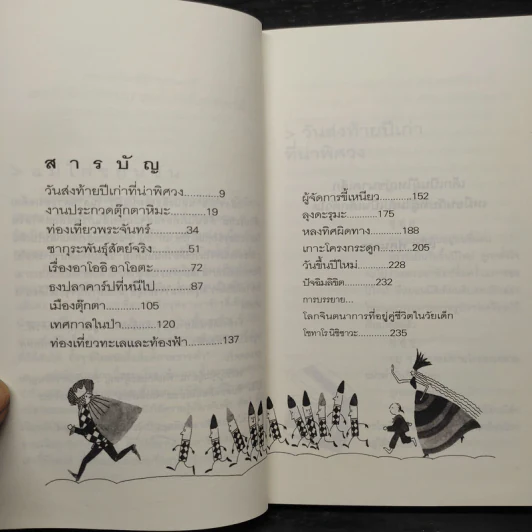 สารบัญ
วันส่งท้ายปีเก่าที่น่าพิศวง............9
งานประกวดตุ๊กตาหิมะ............19
ท่องเที่ยวพระจันทร์............34
ซากุระพันธุ์สัตย์จริง............51
เรื่องอาโออิ อาโอตะ............72
ธงปลาคาร์ปที่หนีไป............87
เมืองตุ๊กตา............105
เทศกาลในป่า............120
ท่องเที่ยวทะเลและท้องฟ้า............137
ผู้จัดการขี้เหนียว............152
ลุงดะรุมะ............175
หลงทิศผิดทาง............188
เกาะโครงกระดูก............205
วันขึ้นปีใหม่............228
ปัจฉิมลิขิต............232
การบรรยาย...
โลกจินตนาการที่อยู่คู่ชีวิตในวัยเด็ก
โชทาโร นิชิซาวะ............235